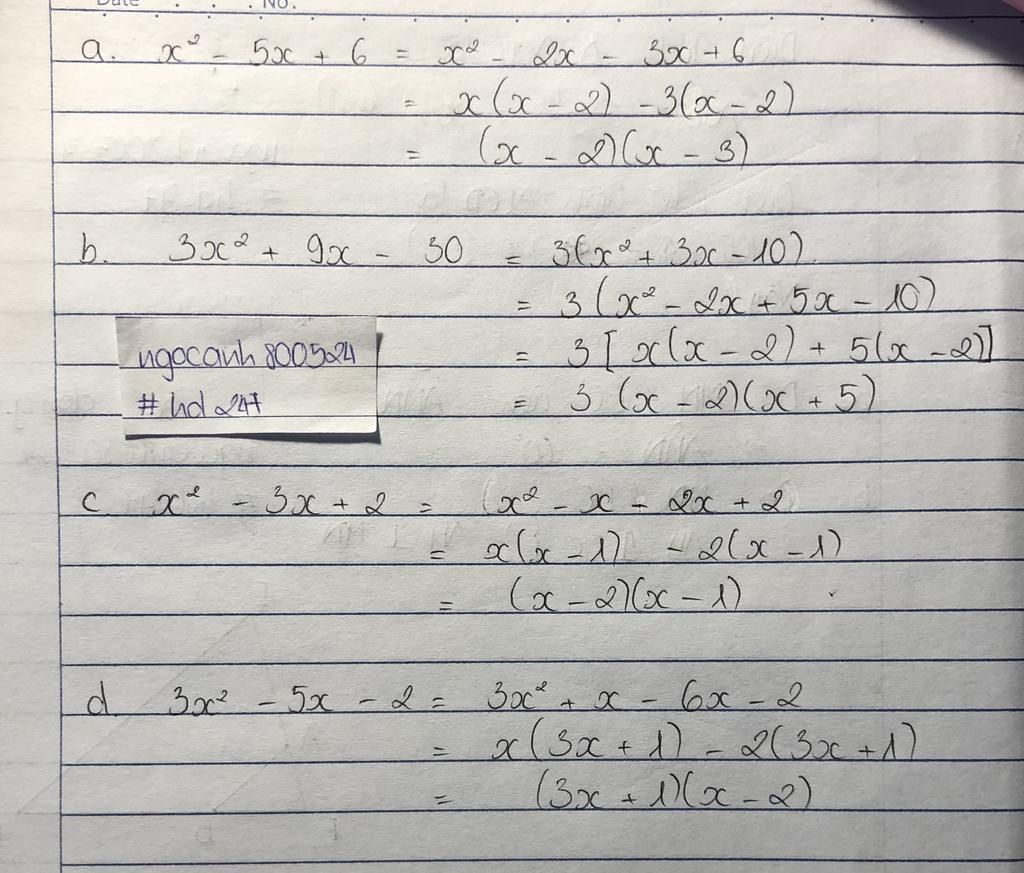 Date No.
a. x² - 5x + 6 = x² - 2x - 3x + 6
= x(x - 2) - 3(x - 2)
= (x - 2)(x - 3)
b. 3x² + 9x - 30 = 3(x² + 3x - 10)
= 3(x² - 2x + 5x - 10)
= 3[x(x - 2) + 5(x - 2)]
= 3(x - 2)(x + 5)
ngocanh800524
#hd247
c x² - 3x + 2 = (x² - x - 2x + 2
= x(x - 1) - 2(x - 1)
= (x - 2)(x - 1)
d. 3x² - 5x - 2 = 3x² + x - 6x - 2
= x(3x + 1) - 2(3x + 1)
= (3x + 1)(x - 2)